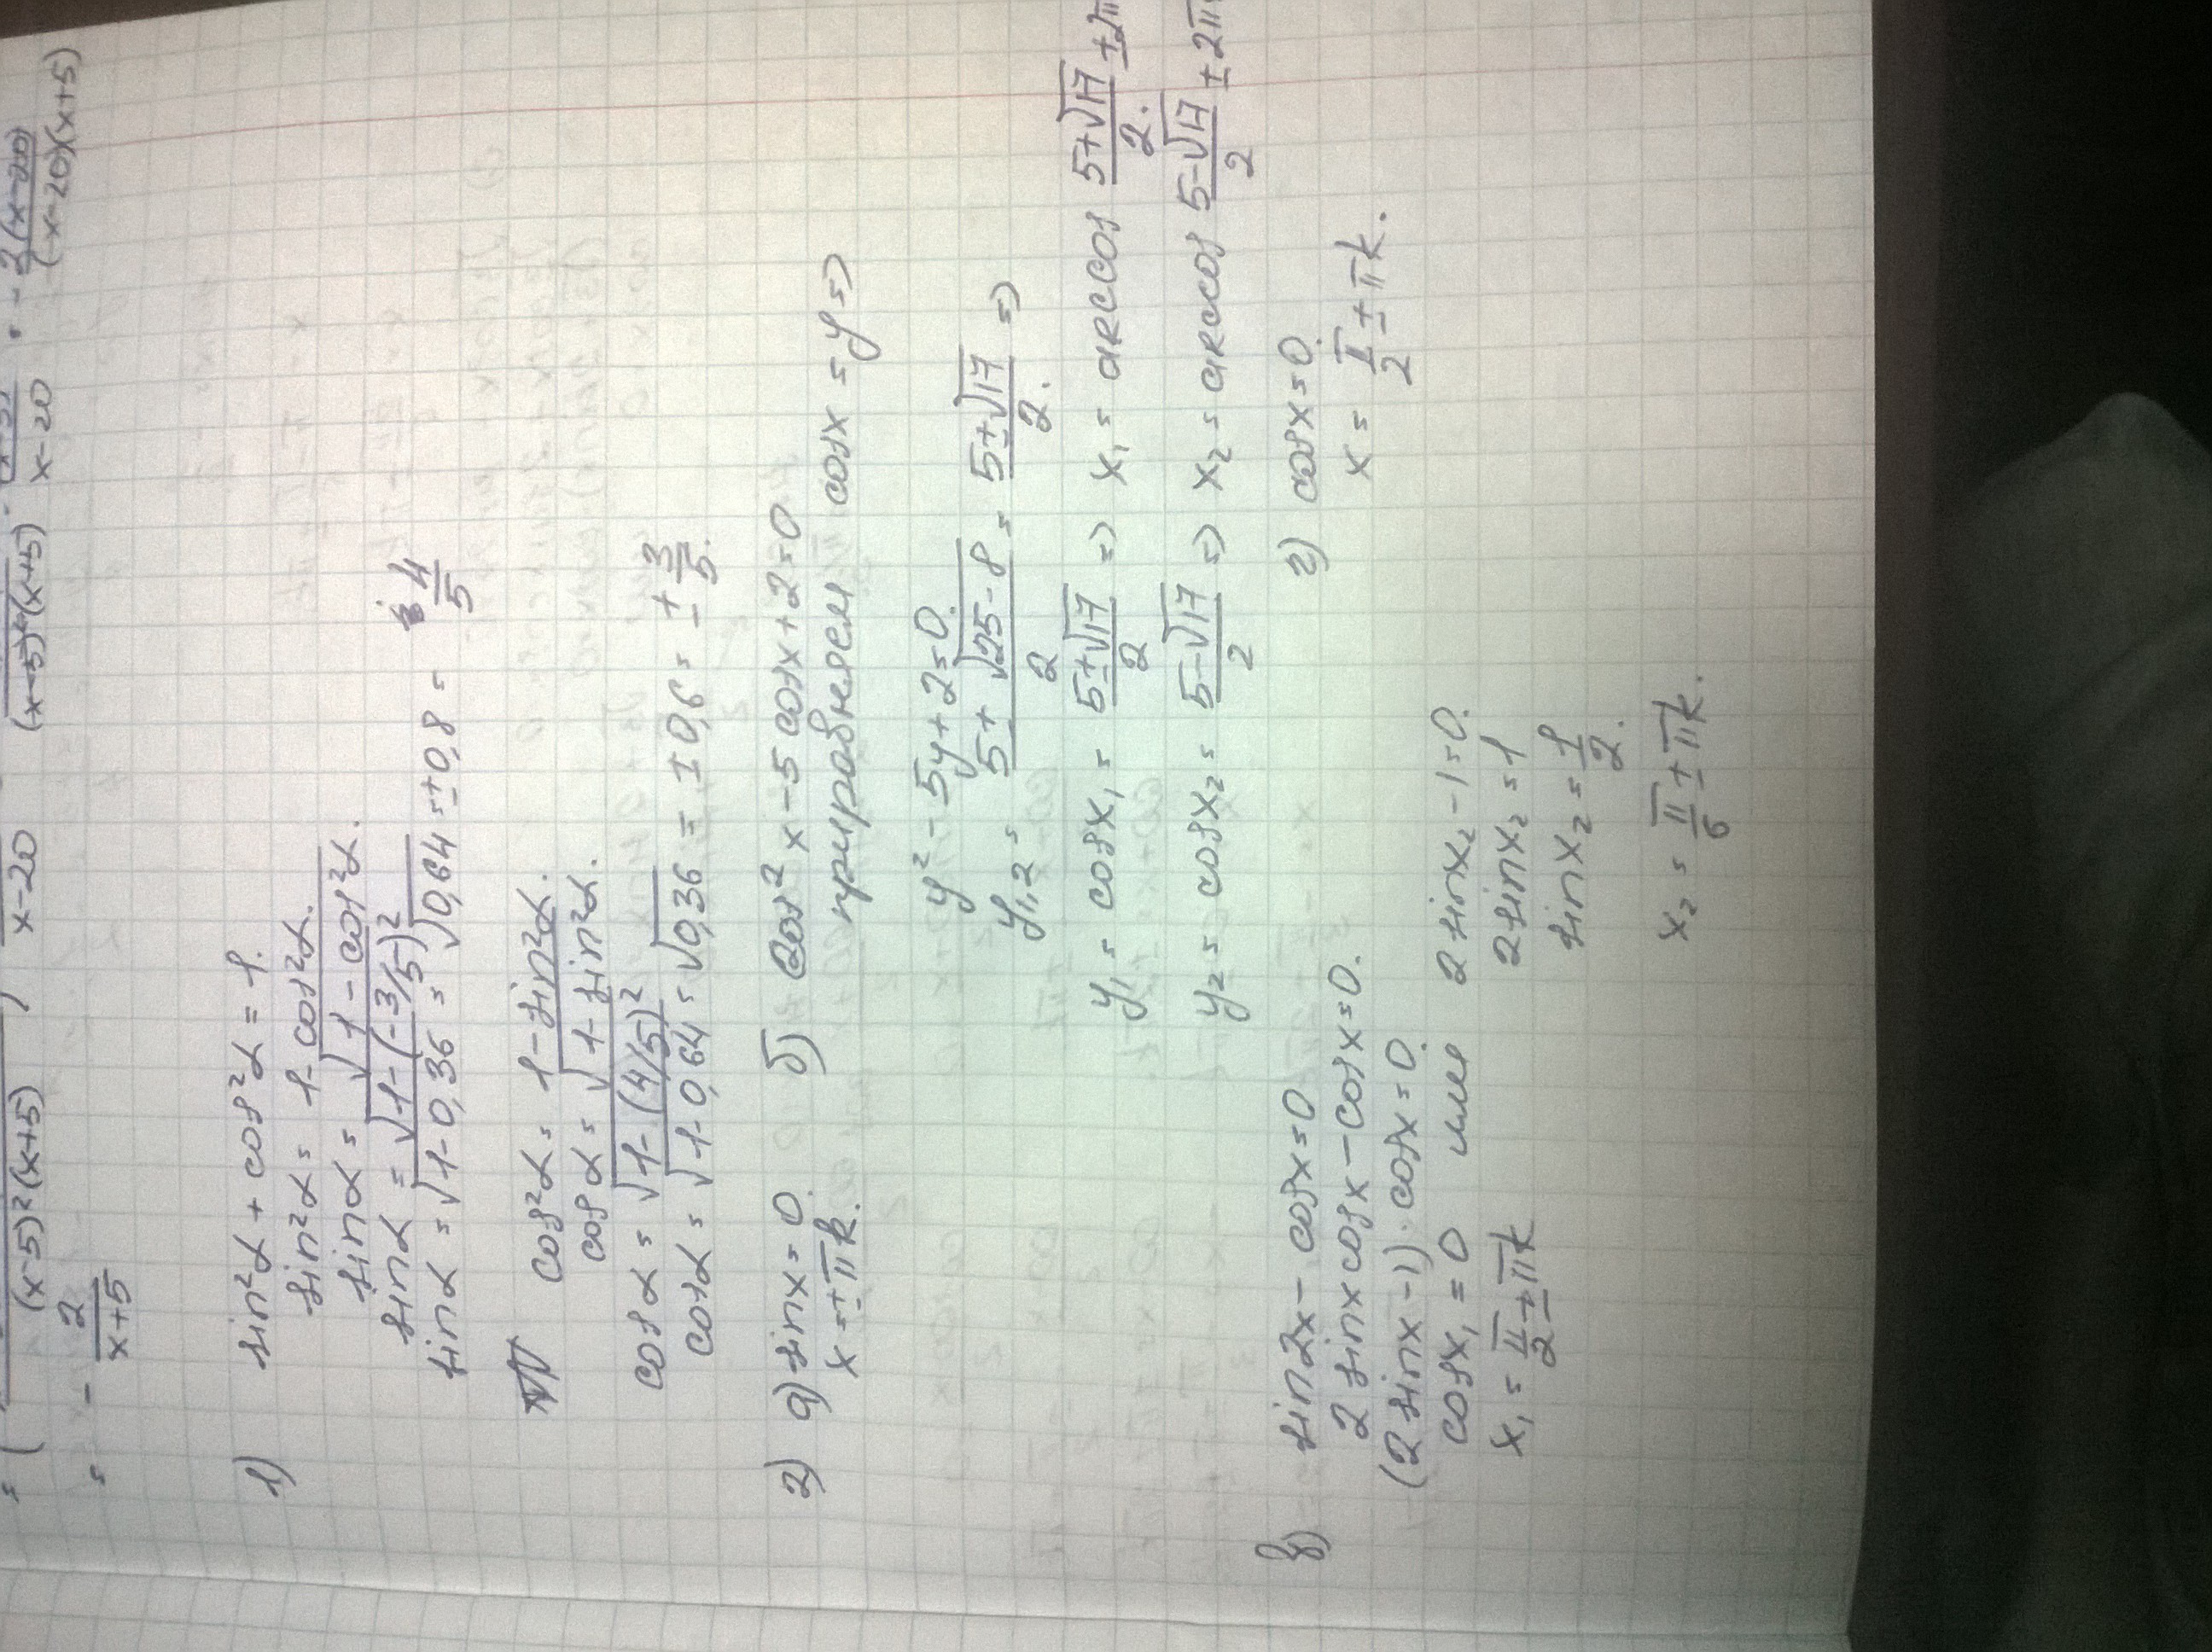 = - 2/(x+5)
1) sin²α + cos²α = 1.
sin²α = 1 - cos²α.
sinα = √(1 - cos²α.)
sinα = √(1-(-3/5)²)
sinα = √(1-0,36) = √0,64 = ±0,8 = 4/5
cos²α = 1 - sin²α.
cosα = √(1-sin²α.)
cosα = √(1-(4/5)²)
cosα = √(1-0,64) = √0,36 = ±0,6 = ±3/5.
2) a) sinx = 0. б) cos²x - 5cosx + 2 = 0
x = ±πk. приравняем cosx = y =>
y² - 5y + 2 = 0.
y1,2 = (5 ± √(25-8))/2 = (5±√17)/2. =>
y₁ = cosx₁ = (5±√17)/2 => x₁ = arccos (5+√17)/2. ±2π
y₂ = cosx₂ = (5-√17)/2 => x₂ = arccos (5-√17)/2 ±2π
в) sin2x - cosx = 0. г) cosx = 0.
2sinxcosx - cosx = 0. x = π/2 ± πk.
(2sinx - 1)·cosx = 0.
cosx₁ = 0 или 2sinx₂ - 1 = 0.
x₁ = π/2 ± πk 2sinx₂ = 1
sinx₂ = 1/2.
x₂ = π/6 ± πk.